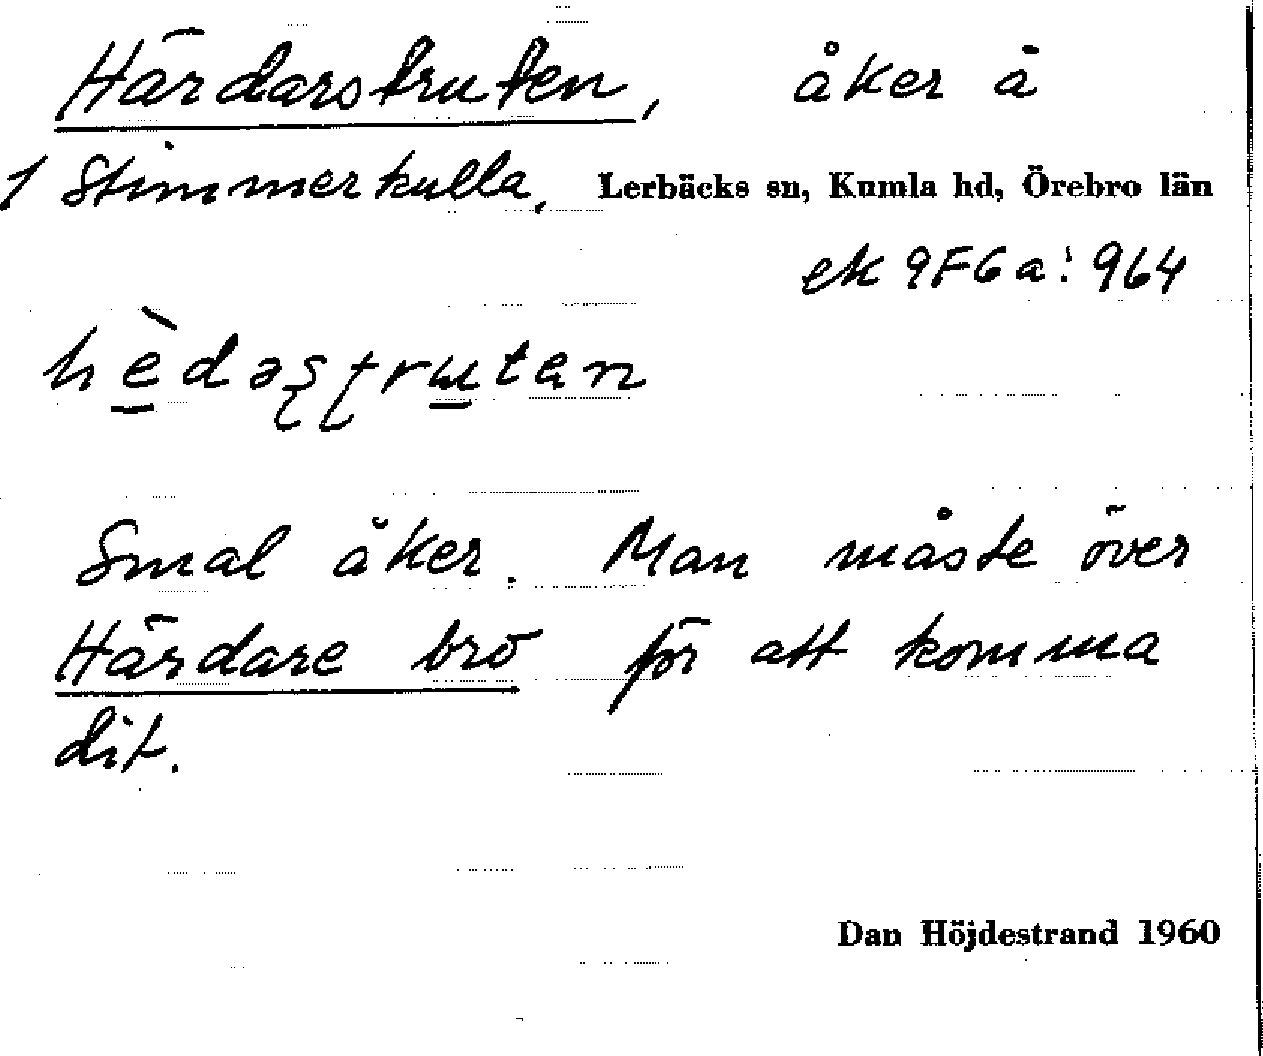 Härdarstruten, åker å
1 Stimmerkulla, Lerbäcks sn, Kumla hd, Örebro län
ek 9F6a: 964
hèdəʂʈrutən
Smal åker. Man måste över
Härdare bro för att komma
dit.
Dan Höjdestrand 1960